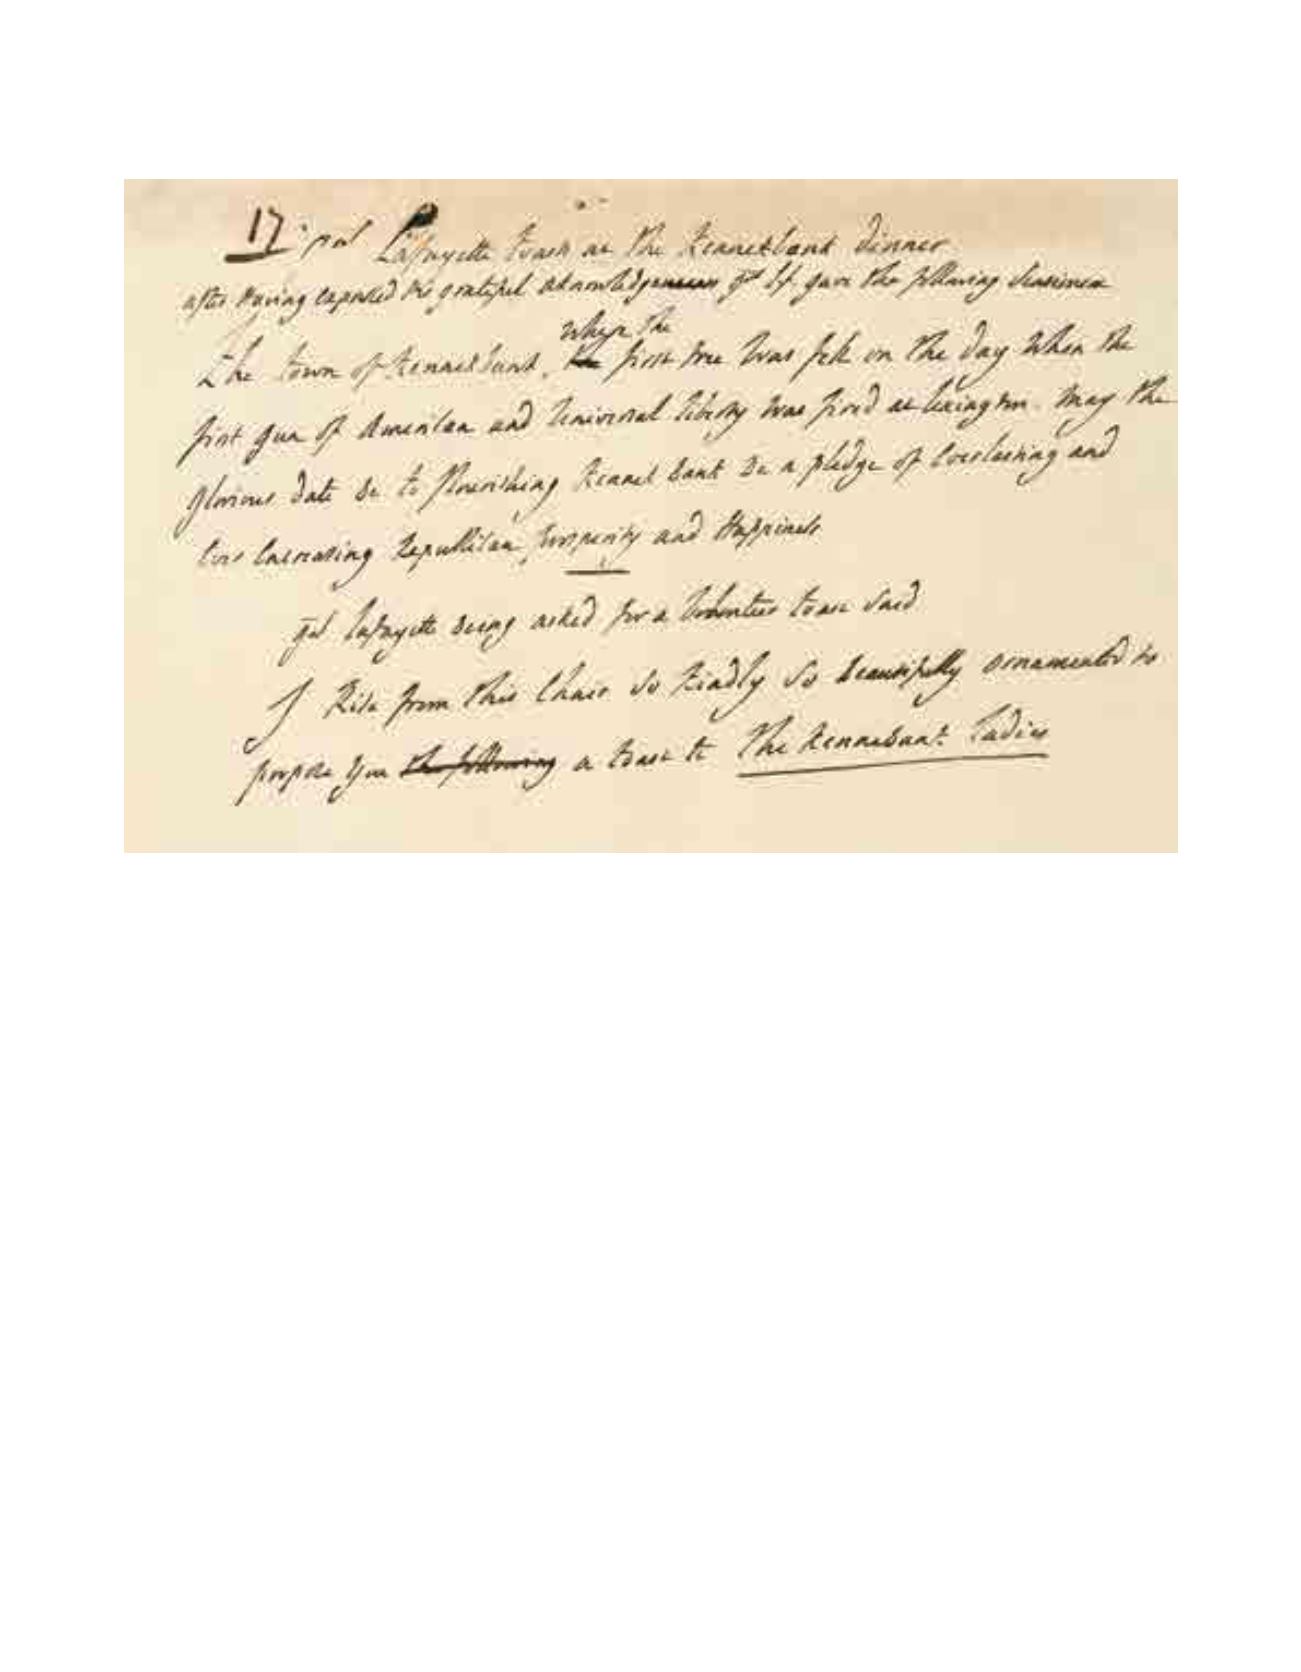 17 genl Lafayette toast at the Kennebunk dinner
after Having expressed His grateful acknowledgements gnl Lf. gave the following Sentiment
where the
The town of Kennebunk, the first tree Was fell on the day When the
first gun of American and Universal liberty was fired at lexington. May the
glorious date be to flourishing Kennebunk be a pledge of Everlasting and
Ever Encreasing Republican prosperity and Happiness
gnl Lafayette being asked for a Volunteer toast Said
I Rise from this Chair So Kindly So beautifully ornamented to
propose You the following a toast to The Kennebunk Ladies